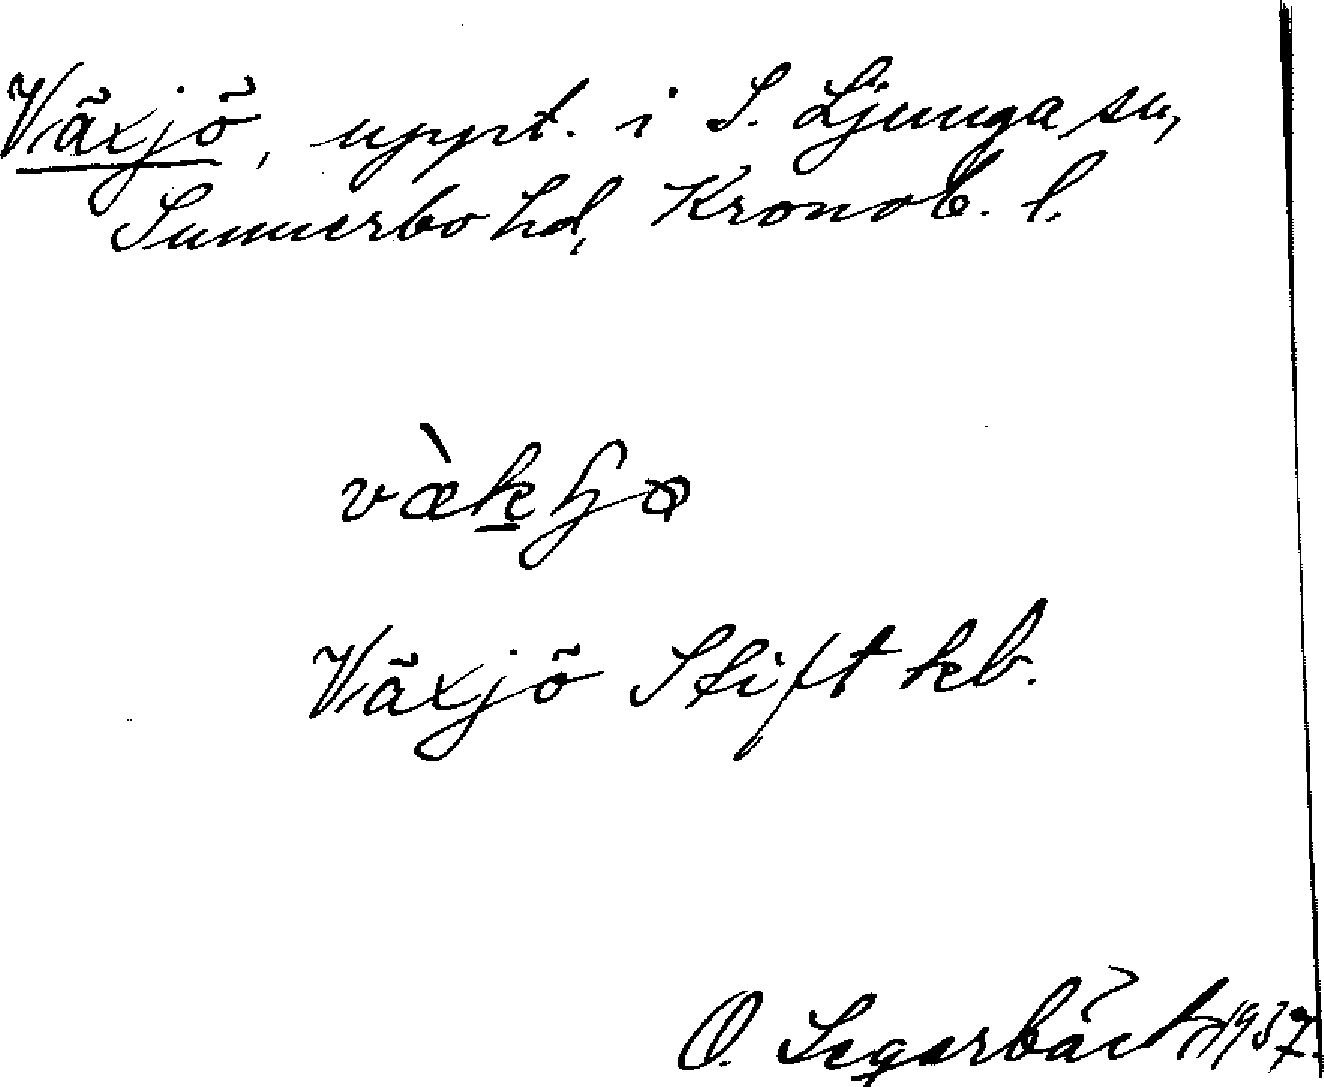 Växjö, uppt. i S. Ljunga sn,
Sunnerbo hd, Kronob. l.
Växjö Stift kb.
O. Segerbäck 1937.